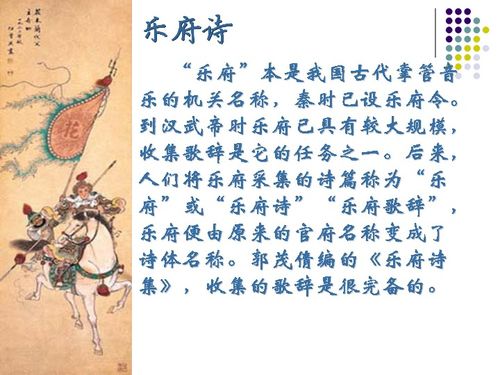 乐府诗
“乐府”本是我国古代掌管音
乐的机关名称，秦时已设乐府令。
到汉武帝时乐府已具有较大规模，
收集歌辞是它的任务之一。后来，
人们将乐府采集的诗篇称为“乐
府”或“乐府诗”“乐府歌辞”，
乐府便由原来的官府名称变成了
诗体名称。郭茂倩编的《乐府诗
集》，收集的歌辞是很完备的。
花